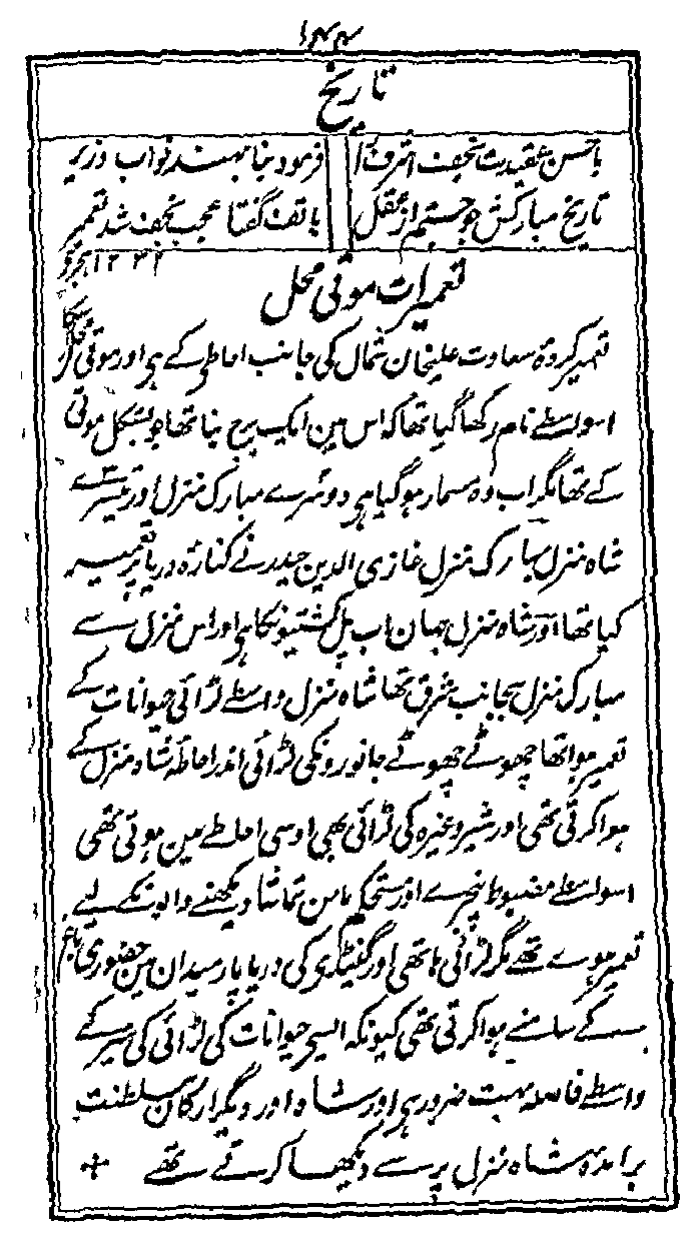 ۱۴۴
تاریخ
باحسن عقیدت نجف اشرف را فرمود بنا بہند نواب وزیر
تاریخ مبارکش چو جستم از عقل ہاتف گفتا عجب نجف شد تعمیر
۱۲۳۲ ہجری
تعمیرات موتی محل
تعمیر کردہ سعادت علیخان شمال کی جانب احاطی کے ہی اور موتی محل
اسواسطے نام رکھا گیا تھا کہ اس مین ایک برج بنا تھا جو بشکل موتی
کے تھا مگر اب وہ مسمار ہو گیا ہی دوسرے مبارک منزل اور تیسرے
شاہ منزل مبارک منزل غازی الدین حیدر نے کنارہ دریا پر تعمیر
کیا تھا اور شاہ منزل جہان اب پل کشتیونکا ہی اور اس منزل سے
مبارک منزل بجانب شرق تھا شاہ منزل واسطے لڑائی حیوانات کے
تعمیر ہوا تھا چھوٹے چھوٹے جانورونکی لڑائی اندر احاطہ شاہ منزل کے
ہوا کرتی تھی اور شیر وغیرہ کی لڑائی بھی اوسی احاطے مین ہوتی تھی
اسواسطے مضبوط پنجرے اور مستحکم مامن تماشا دیکھنے والونکے لیے
تعمیر ہوے تھے مگر لڑائی ہاتھی اور گینڈے کی دریا پار میدان مین حضوری باغ
کے سامنے ہوا کرتی تھی کیونکہ ایسی حیوانات کی لڑائی کی سیر کے
واسطے فاصلہ بہت ضرور ہی اور شاہ اور دیگر ارکان سلطنت
برامدہ شاہ منزل پر سے دیکھا کرتے تھے